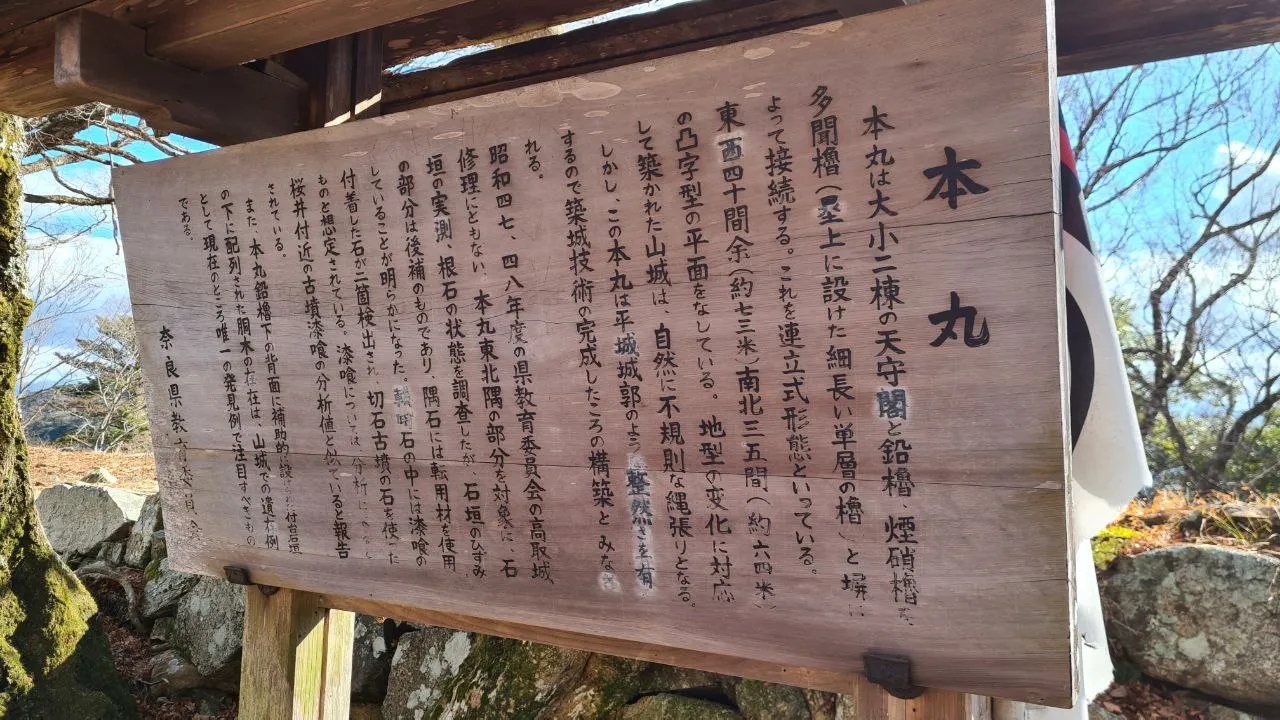 本丸
本丸は大小二棟の天守閣と鉛櫓、煙硝櫓を
多聞櫓(塁上に設けた細長い単層の櫓)と塀に
よって接続する。これを連立式形態といっている。
東西四十間余(約七三米)南北三五間(約六四米)
の凸字型の平面をなしている。地型の変化に対応
して築かれた山城は、自然に不規則な縄張りとなる。
しかし、この本丸は平城城郭のよう 整然さを有
するので築城技術の完成したころの構築とみなさ
れる。
昭和四七、四八年度の県教育委員会の高取城
修理にともない、本丸東北隅の部分を対象に、石
垣の実測、根石の状態を調査したが、石垣のひずみ
の部分は後補のものであり、隅石には転用材を使用
していることが明らかになった。 石の中には漆喰の
付着した石が二箇検出され、切石古墳の石を使った
ものと想定されている。漆喰については、分析
桜井付近の古墳漆喰の分析値と似ていると報告
されている。
また、本丸鉛櫓下の背面に補助的 設 付台石垣
の下に配列された胴木の存在は、山城での遺存例
として現在のところ唯一の発見例で注目すべきもの
である。
奈良県教育委員会